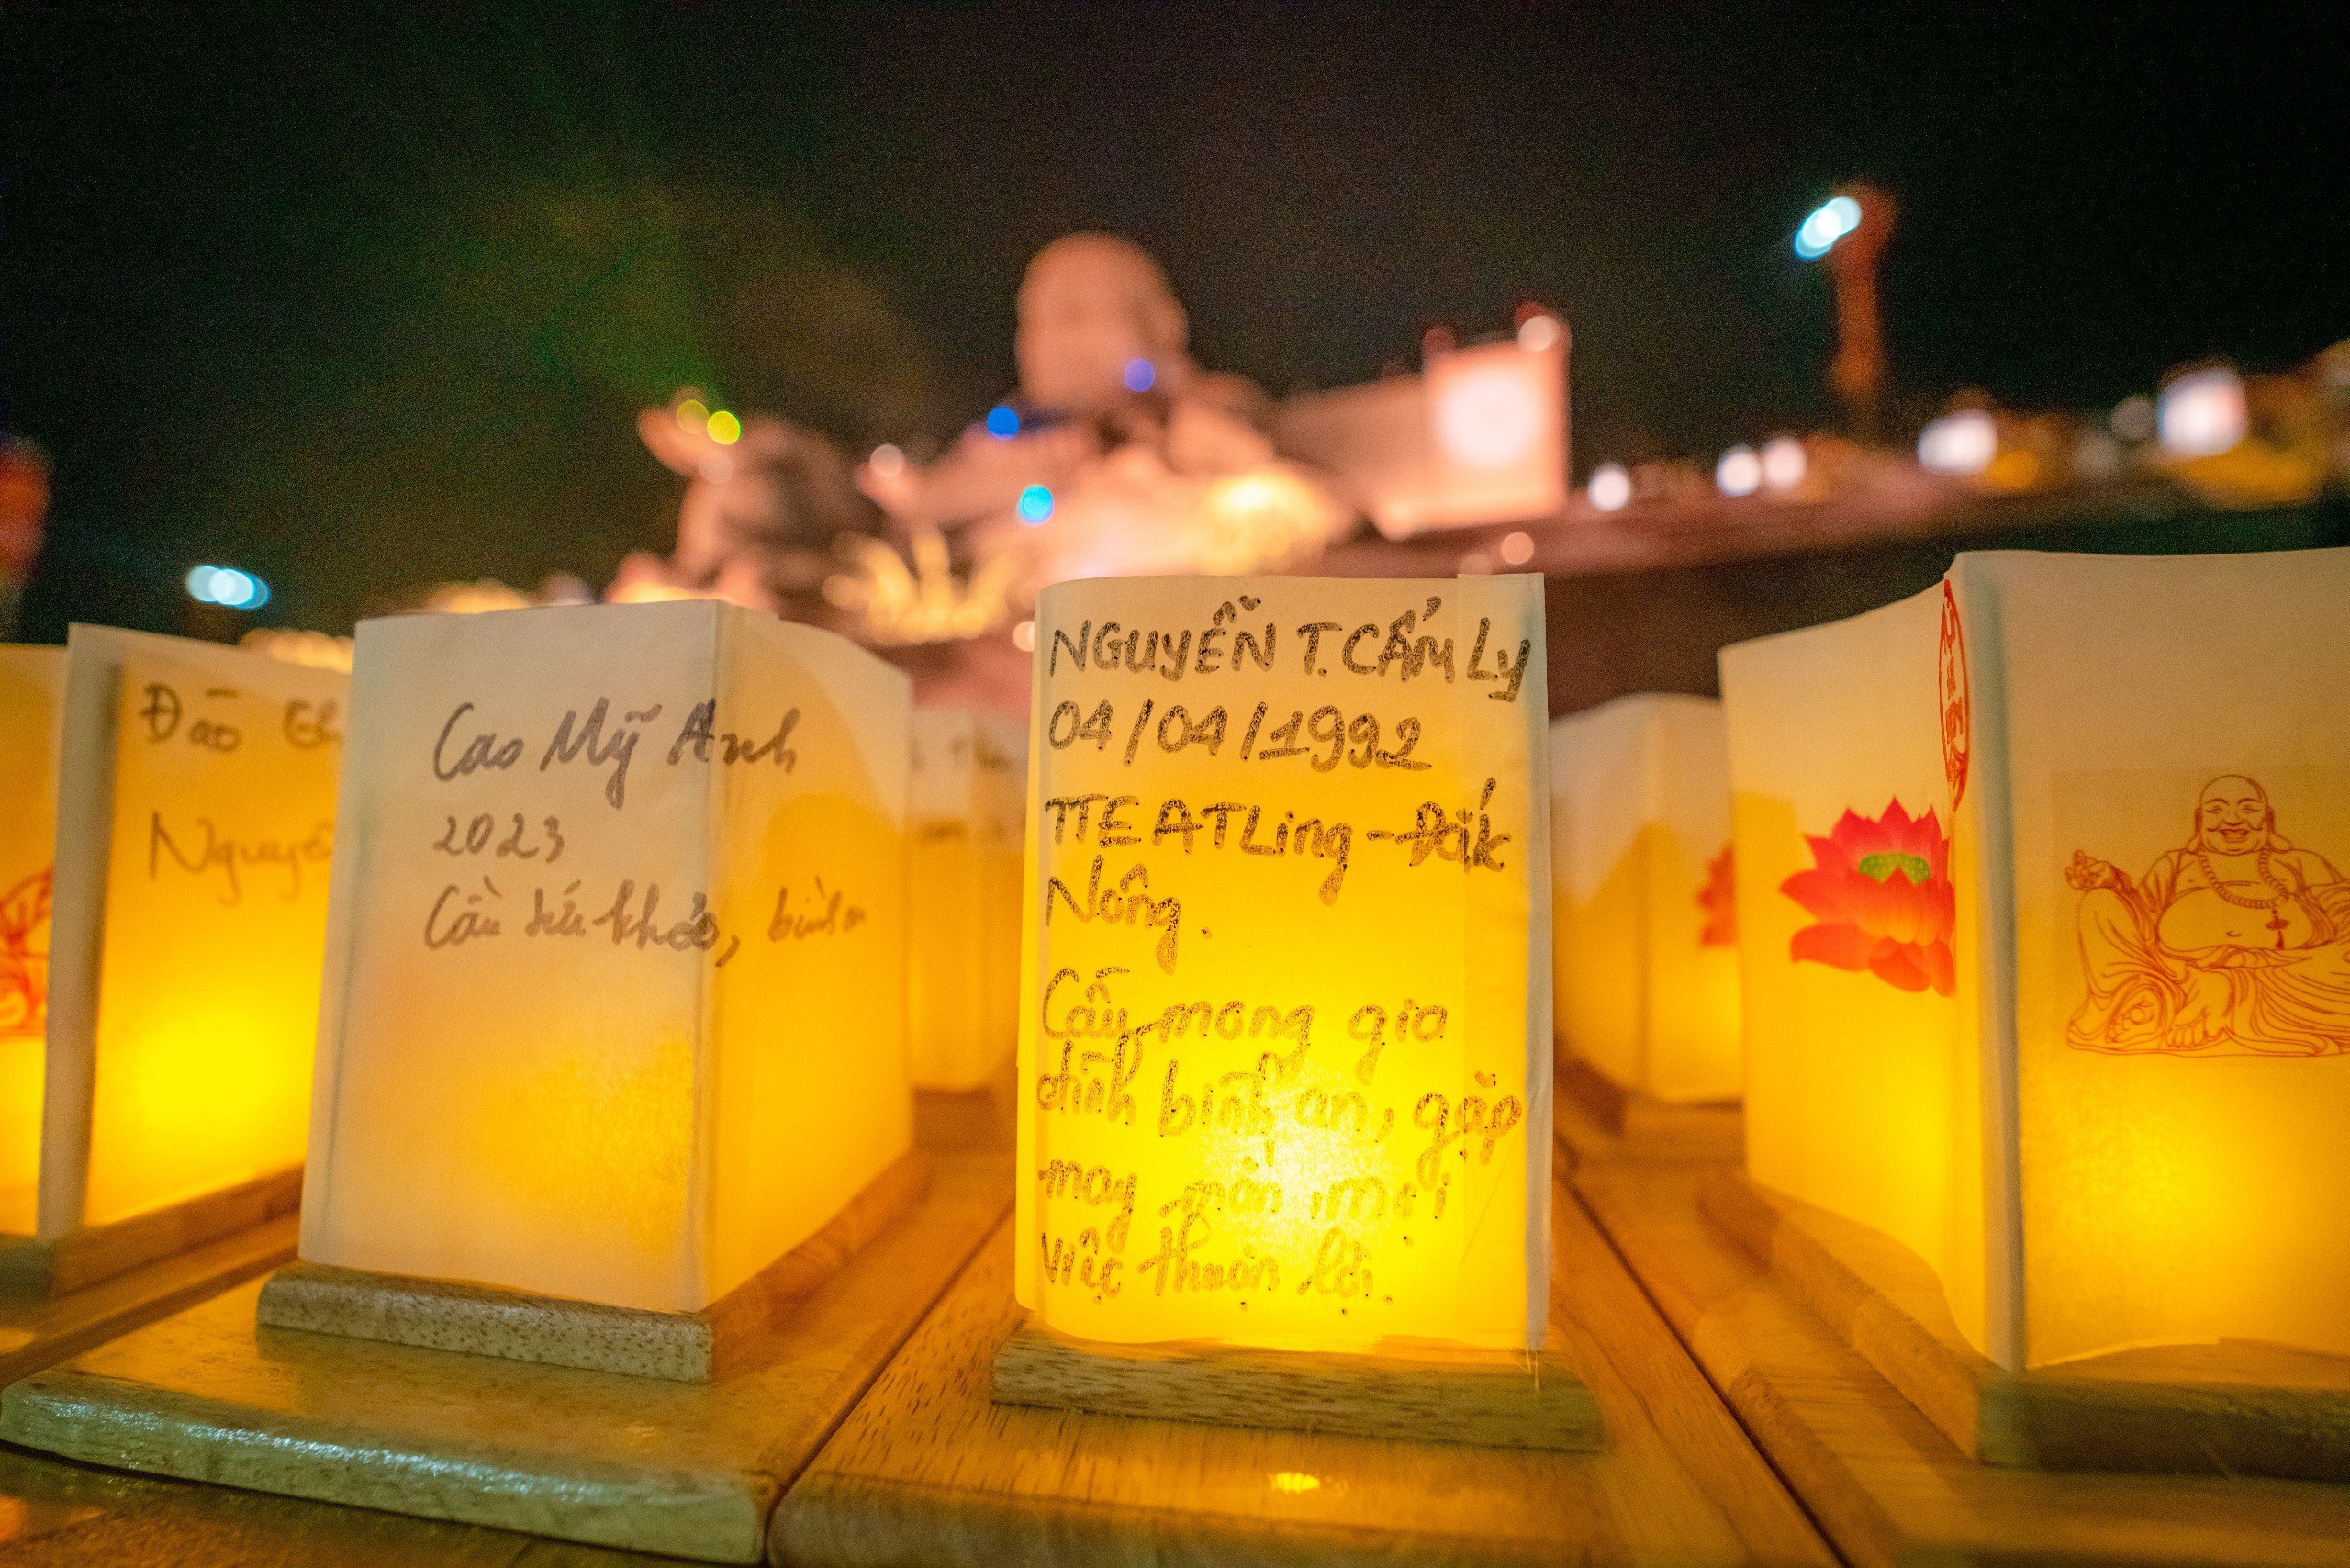 Đào Th
Nguyễ
Cao Mỹ Anh
2023
Cầu sức khỏe, bình a
NGUYỄN T. CẨM LY
04/04/1992
TTEATLing-Đắk
Nông.
Cầu mong gia
đình bình an, gặp
may mắn, mọi
việc thuận lợi.